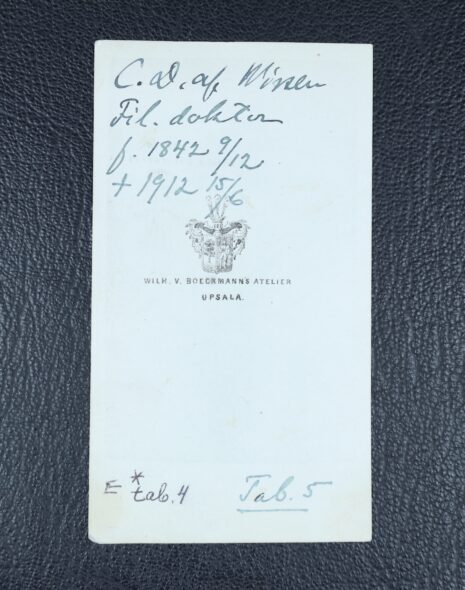 C. D. af Wirsen
Fil. doktor
f. 1842 9/12
+ 1912 15/6
WILH. V. BOECKMANN'S ATELIER
UPSALA.
E * tab. 4
Tab. 5